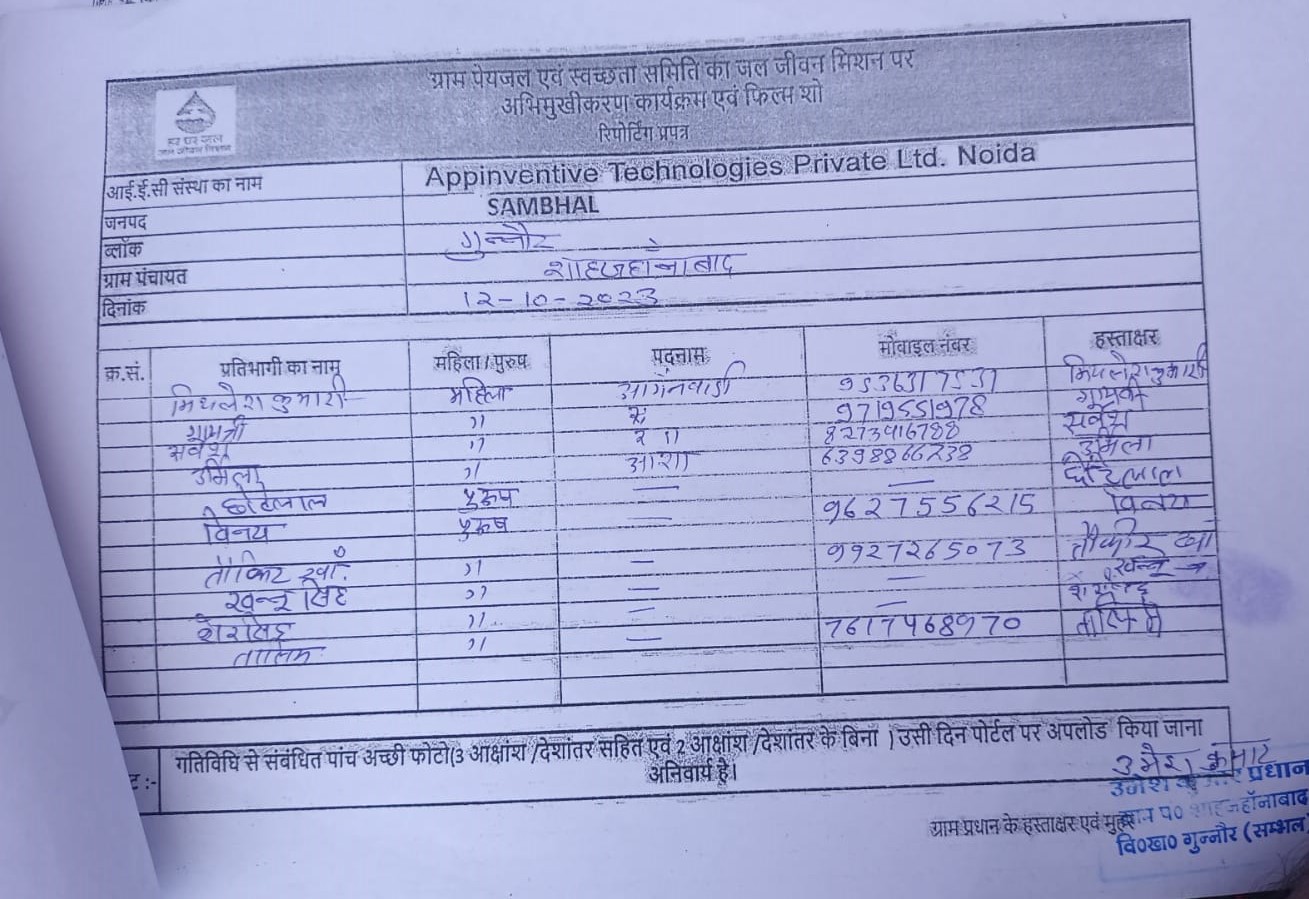 ग्राम पेयजल एवं स्वच्छता समिति का जल जीवन मिशन पर
अभिमुखीकरण कार्यक्रम एवं फिल्म शो
रिपोर्टिंग प्रपत्र
हर घर जल
जल जीवन मिशन
आई.ई.सी संस्था का नाम Appinventive Technologies Private Ltd. Noida
जनपद SAMBHAL
ब्लॉक गुन्नौर
ग्राम पंचायत शाहजहाँनाबाद
दिनांक 12-10-2023
क्र.सं. प्रतिभागी का नाम महिला / पुरुष पदनाम मोबाइल नंबर हस्ताक्षर
मिथलेश कुमारी महिला आगंनवाडी 9536317531 मिथलेश कुमारी
गायत्री " 9719551978
सर्वेश " 8273916788 सर्वेश
उर्मिला " आशा 6398866238 उर्मिला
छोटेलाल पुरूष — — छोटेलाल
विनय पुरूष — 9627556215 विनय
तौकिर खाँ " — 9927265073 तौकीर खाँ
खन्नू सिंह " — —
शेरसिंह " — — शेरसिंह
तालिम " — 7617468970 तालिम
गतिविधि से संबंधित पांच अच्छी फोटो(3 आक्षांश /देशांतर सहित एवं 2 आक्षांश /देशांतर के बिना ) उसी दिन पोर्टल पर अपलोड किया जाना
अनिवार्य है।
उमेश कुमार
प्रधान
ग्राम प्रधान के हस्ताक्षर एवं मुहर
ग्राम पं० शाहजहॉनाबाद
वि०ख० गुन्नौर (सम्भल)